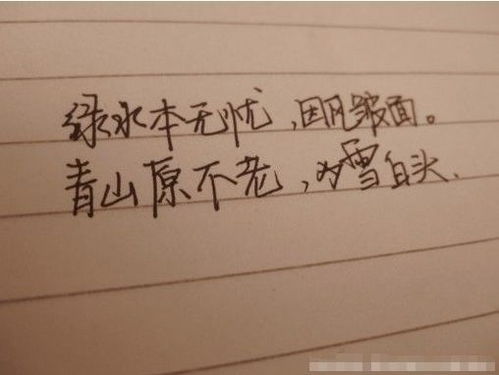 绿水本无忧,因风皱面。
青山原不老,为雪白头.